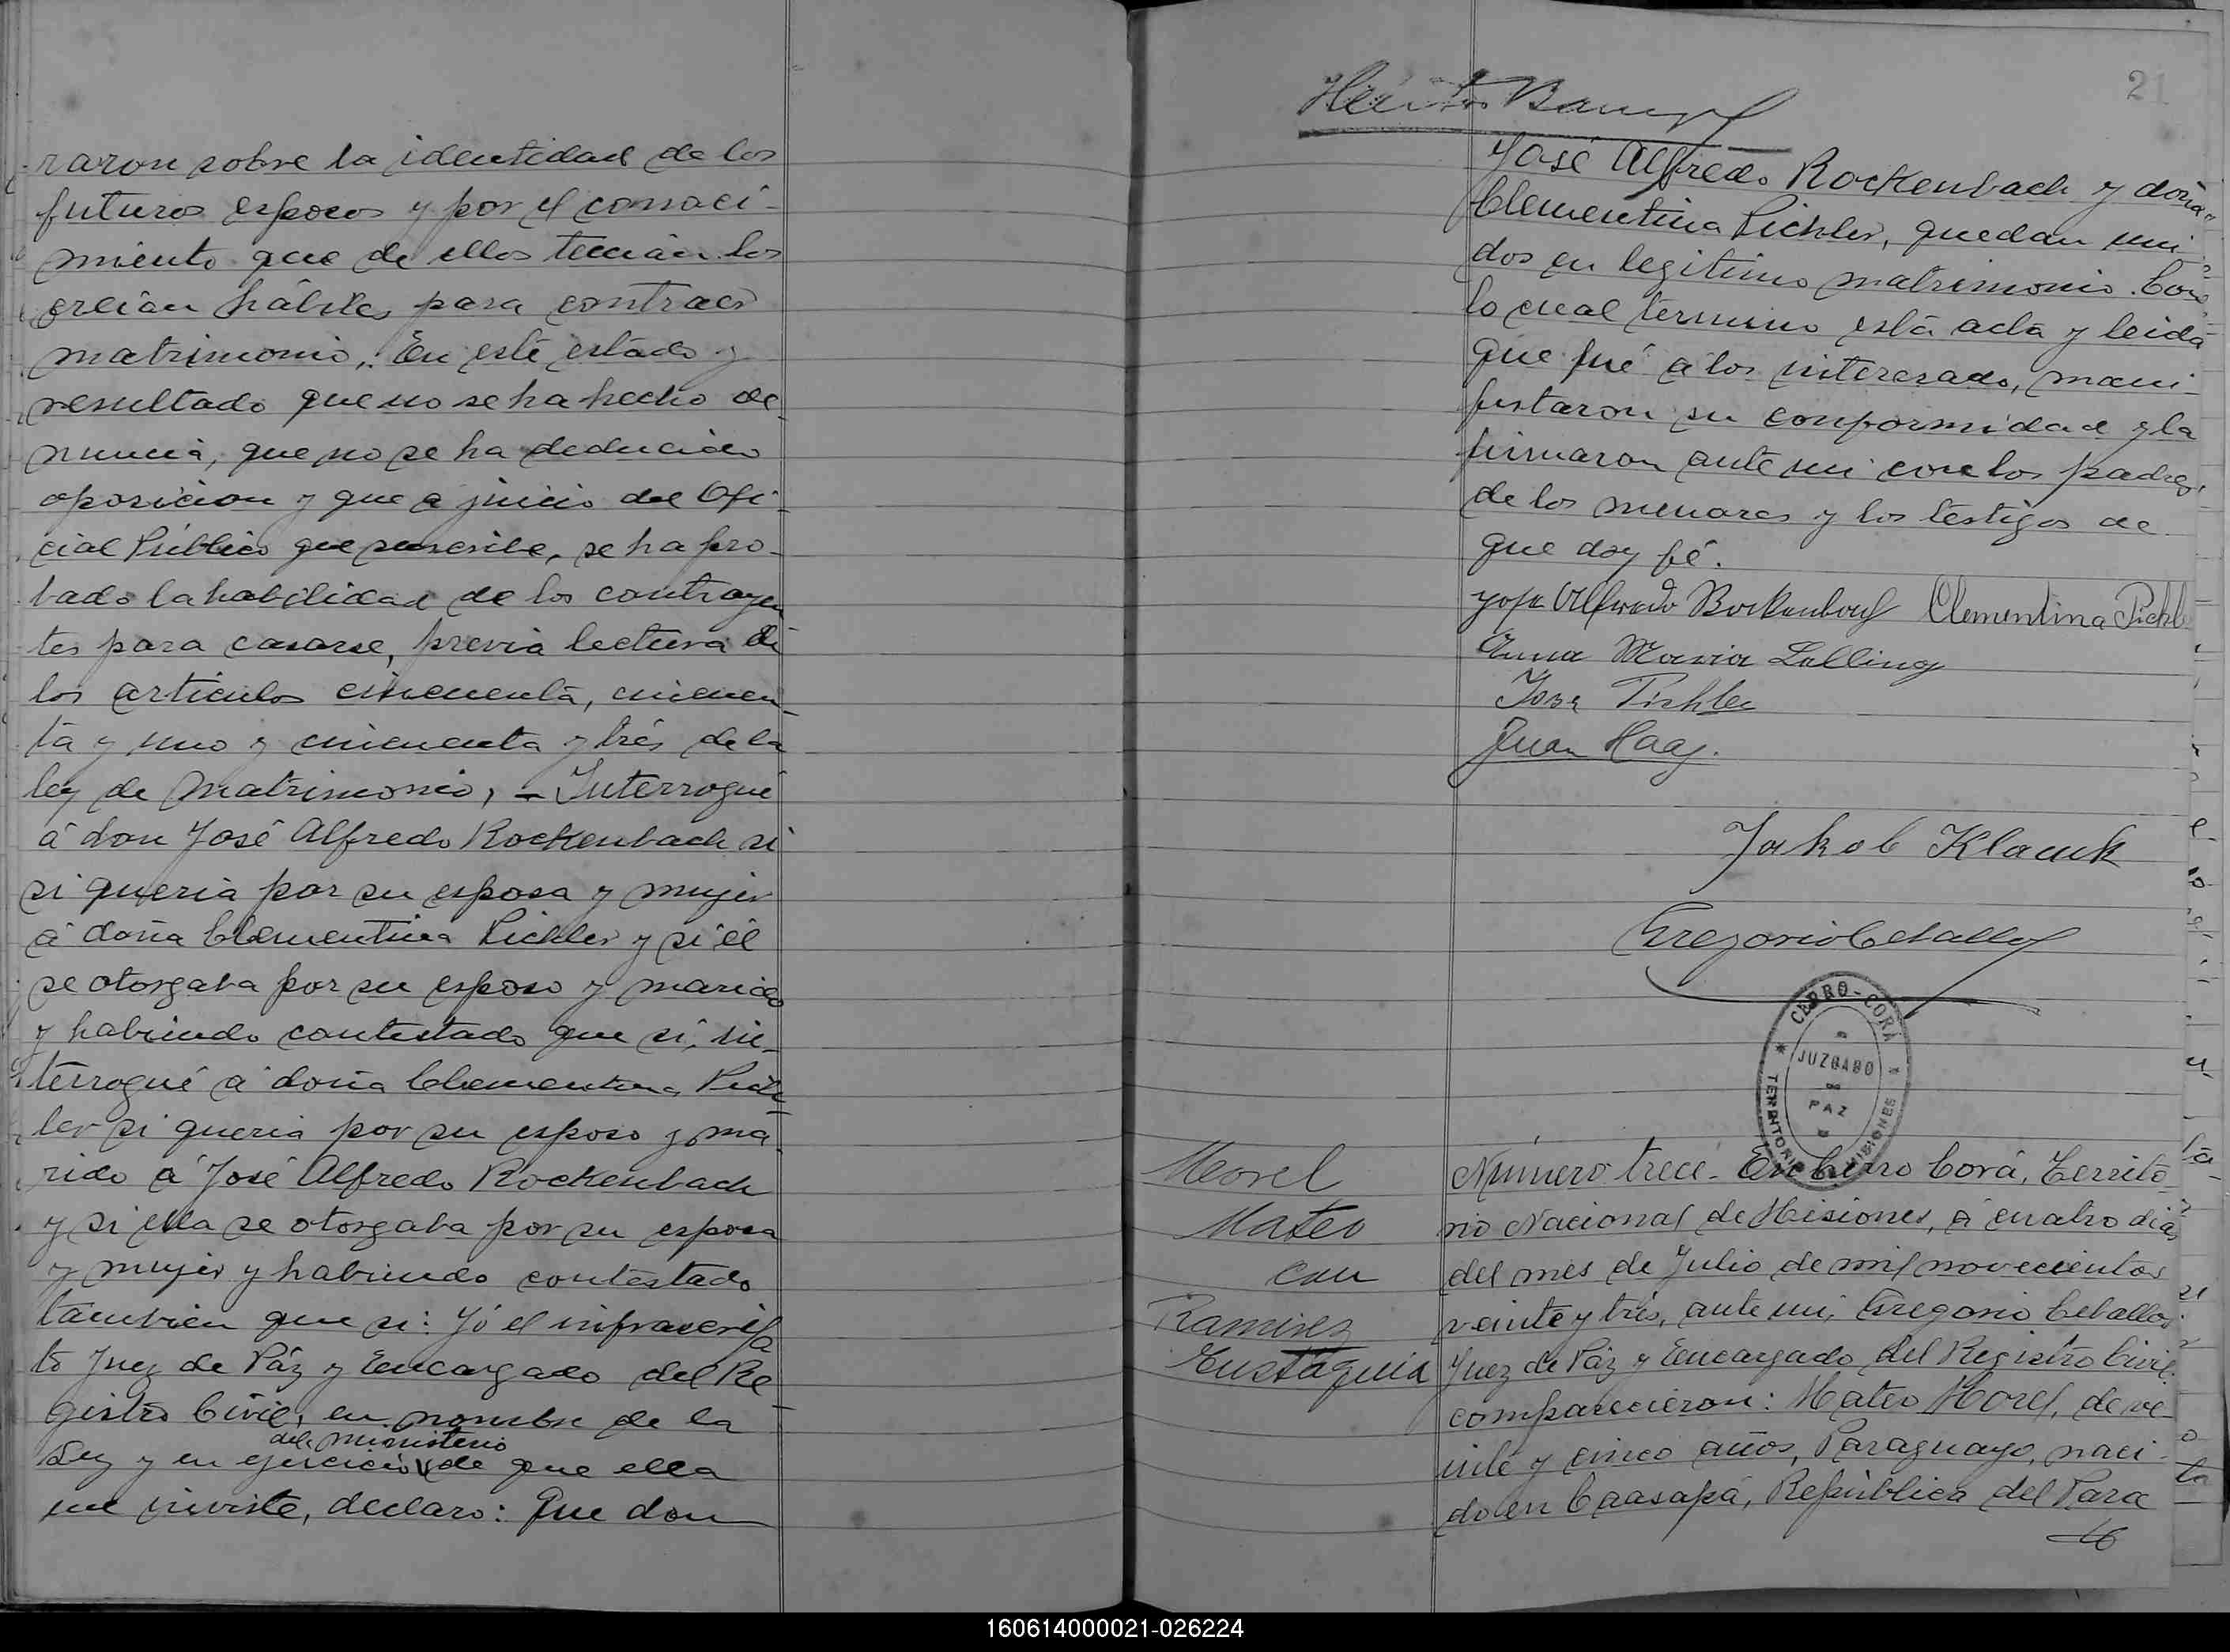 raron sobre la identidad de los
futuros esposos y por el conoci-
miento que de ellos tenian los
creian hábiles para contraer
matrimonio, En este estado y
resultado que no se ha hecho de-
nuncia, que no se ha deducido
oposicion y que a juicio del Ofi-
cial Público que suscribe, se ha pro-
bado la habilidad de los contrayen
tes para casarse, previa lectura de
los articulos cincuenta, cincuen-
ta y uno y cincuenta y trés de la
ley de matrimonio, - Interrogué
á don José Alfredo Rockenbach si
si queria por su esposa y mujer
á doña Clementina Pichler y si él
se otorgaba por su esposo y marido
y habiendo contestado que si, in-
terrogué á doña Clementina Pich-
ler si queria por su esposo y ma-
rido á José Alfredo Rockenbach
y si ella se otorgaba por su esposa
y mujer y habiendo contestado
tambien que si: Yó el infrascrip
to Juez de Páz y Encargado del Re-
gistro Civil, en nombre de la
del ministerio
Ley y en ejercicio de que ella
me inviste, declaro: Que don
21
José Alfredo Rockenbach y doña
Clementina Pichler, quedan uni-
dos en legitimo matrimonio. Con
lo cual termino está acta y leida
que fué a los interesado, mani-
festaron su conformidad y la
firmaron ante mi con los padres
de los menores y los testigos de
que doy fé.
Jose Alfredo Rockenbach Clementina Pichl
Anna Maria Lelling
Jose Pichler
Juan Haag.
Jakob Klauck
Gregorio Ceballos
CERRO-CORÁ
JUZGADO
PAZ
TERRITORIO MISIONES
Morel
Mateo
con
Ramirez
Eustaquia
Número trece. En Cerro Corá, Territo-
rio Nacional de Misiones, á cuatro dias
del mes de Julio de mil novecientos
veinte y trés, ante mi, Gregorio Ceballos
Juez de Páz y Encargado del Registro Civil
comparecieron: Mateo Morel, de ve-
inte y cinco años, Paraguayo, naci-
do en Caasapá, República del Para
160614000021-026224